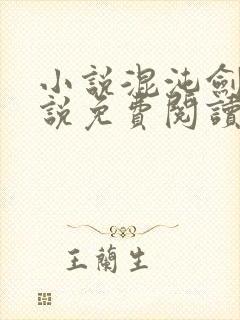 小說混沌劍
說免費閱讀
王蘭生